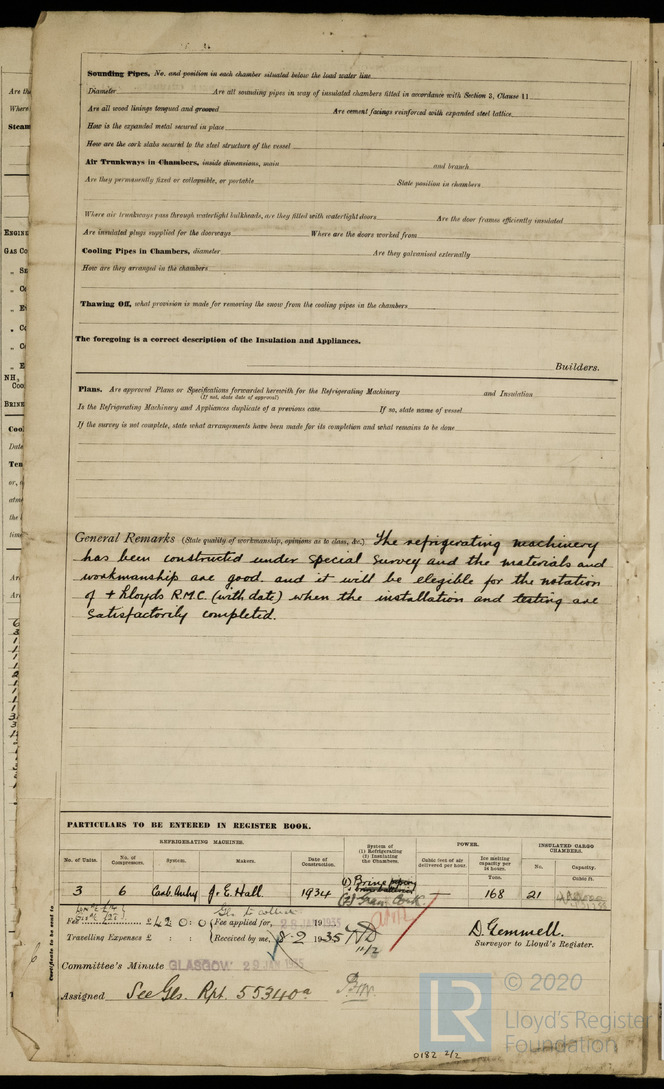 Sounding Pipes, No. and position in each chamber situated below the load water line
Diameter Are all sounding pipes in way of insulated chambers fitted in accordance with Section 3, Clause 11
Are all wood linings tongued and grooved Are cement facings reinforced with expanded steel lattice
How is the expanded metal secured in place
How are the cork slabs secured to the steel structure of the vessel
Air Trunkways in Chambers, inside dimensions, main and branch
Are they permanently fixed or collapsible, or portable State position in chambers
Where air trunkways pass through watertight bulkheads, are they fitted with watertight doors Are the door frames efficiently insulated
Are insulated plugs supplied for the doorways Where are the doors worked from
Cooling Pipes in Chambers, diameter Are they galvanised externally
How are they arranged in the chambers
Thawing Off, what provision is made for removing the snow from the cooling pipes in the chambers
The foregoing is a correct description of the Insulation and Appliances.
Builders.
Plans. Are approved Plans or Specifications forwarded herewith for the Refrigerating Machinery and Insulation
(If not, state date of approval)
Is the Refrigerating Machinery and Appliances duplicate of a previous case If so, state name of vessel
If the survey is not complete, state what arrangements have been made for its completion and what remains to be done
General Remarks (State quality of workmanship, opinions as to class, &c.) The refrigerating machinery
has been constructed under special survey and the materials and
workmanship are good. and it will be elegible for the notation
of + Lloyds R.M.C. (with date) when the installation and testing are
satisfactorily completed.
PARTICULARS TO BE ENTERED IN REGISTER BOOK.
REFRIGERATING MACHINES. System of (1) Refrigerating (2) Insulating the Chambers. POWER. INSULATED CARGO CHAMBERS.
No. of Units. No. of Compressors. System. Makers. Date of Construction. Cubic feet of air delivered per hour. Ice melting capacity per 24 hours. No. Capacity.
Tons. Cubic ft.
3 6 Carb. Anhy J. & E. Hall. 1934 (1) Brine 168 21
(2) Gran. Cork.
Fee £42 : 0 : 0 Fee applied for, 29 JAN 1935
Travelling Expenses £ : : Received by me, 8.2.1935
D. Gemmell.
Surveyor to Lloyd's Register.
Committee's Minute GLASGOW 29 JAN 1935
Assigned See Gls. Rpt. 55340a
Certificate to be sent to
© 2020
LR Lloyd's Register
Foundation
0182 2/2